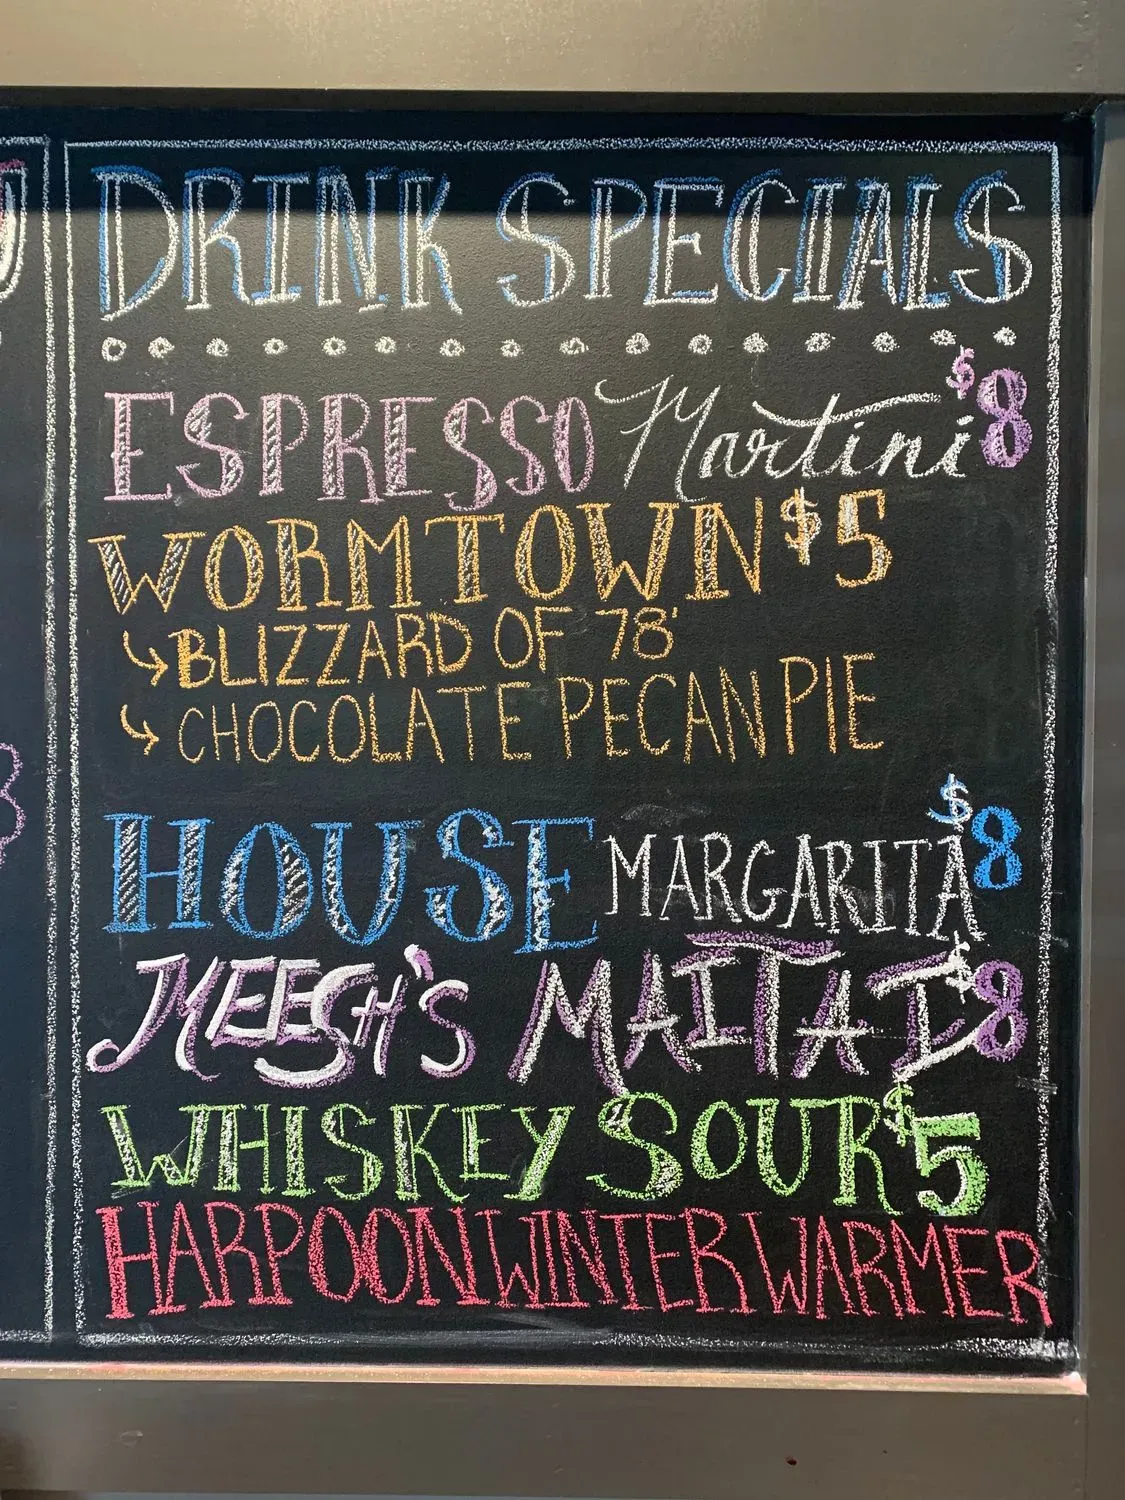 DRINK SPECIALS
ESPRESSO Martini $8
WORMTOWN $5
BLIZZARD OF 78'
CHOCOLATE PECAN PIE
HOUSE MARGARITA $8
MEEGH'S MAITAI $8
WHISKEY SOUR $5
HARPOON WINTER WARMER